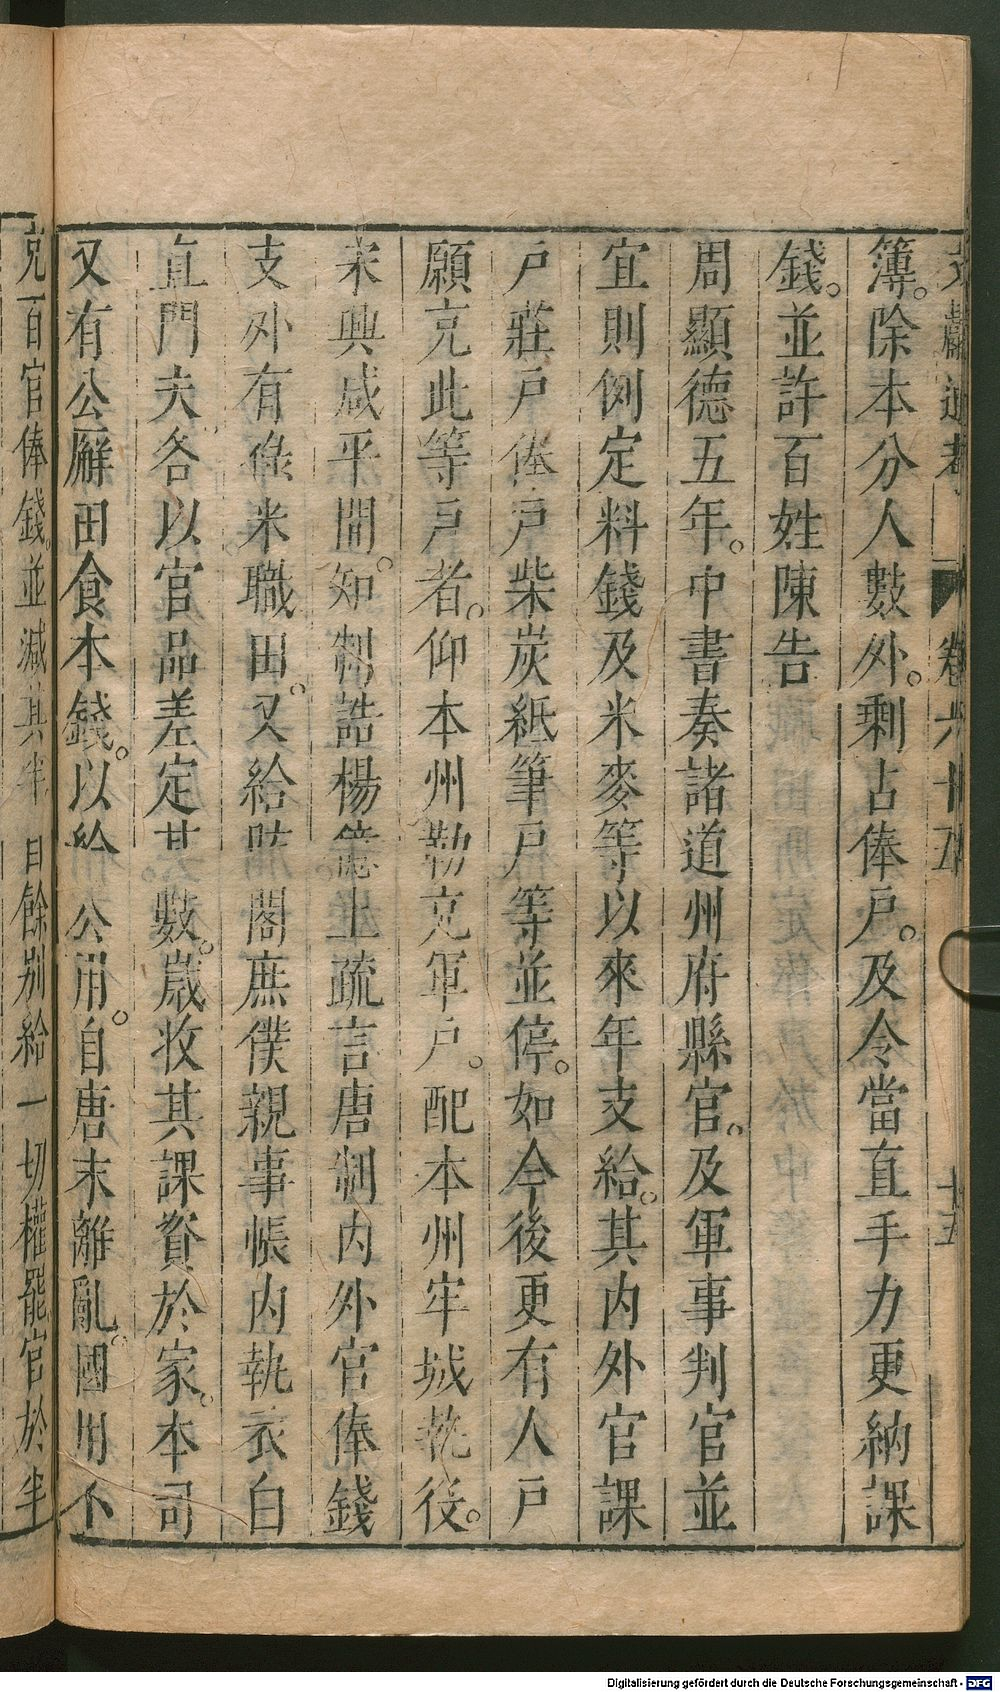 文獻通考 卷六十五 十五
簿。除本分人數外。剩占俸戶。及令當直手力更納課
錢。並許百姓陳告
周顯德五年。中書奏諸道州府縣官。及軍事判官並
宜則例定料錢及米麥等以來年支給。其內外官課
戶莊戶俸戶柴炭紙筆戶等並停。如今後更有人戶
願充此等戶者。仰本州勒充軍戶。配本州牢城執役。
宋興咸平間。知制誥楊億上疏言唐制內外官俸錢
支外有祿米職田。又給防閤庶僕親事帳內執衣白
直門夫各以官品差定其數。歲收其課資於家。本司
又有公廨田食本錢。以給公用。自唐末離亂。國用不
充百官俸錢。並減其半。自餘別給一切權罷官於半
Digitalisierung gefördert durch die Deutsche Forschungsgemeinschaft - DFG